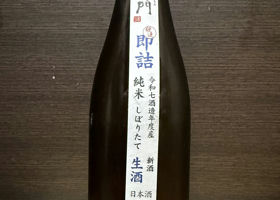 門
即詰
令和七酒造年度産
純米 しぼりたて
新酒
生酒
日本酒